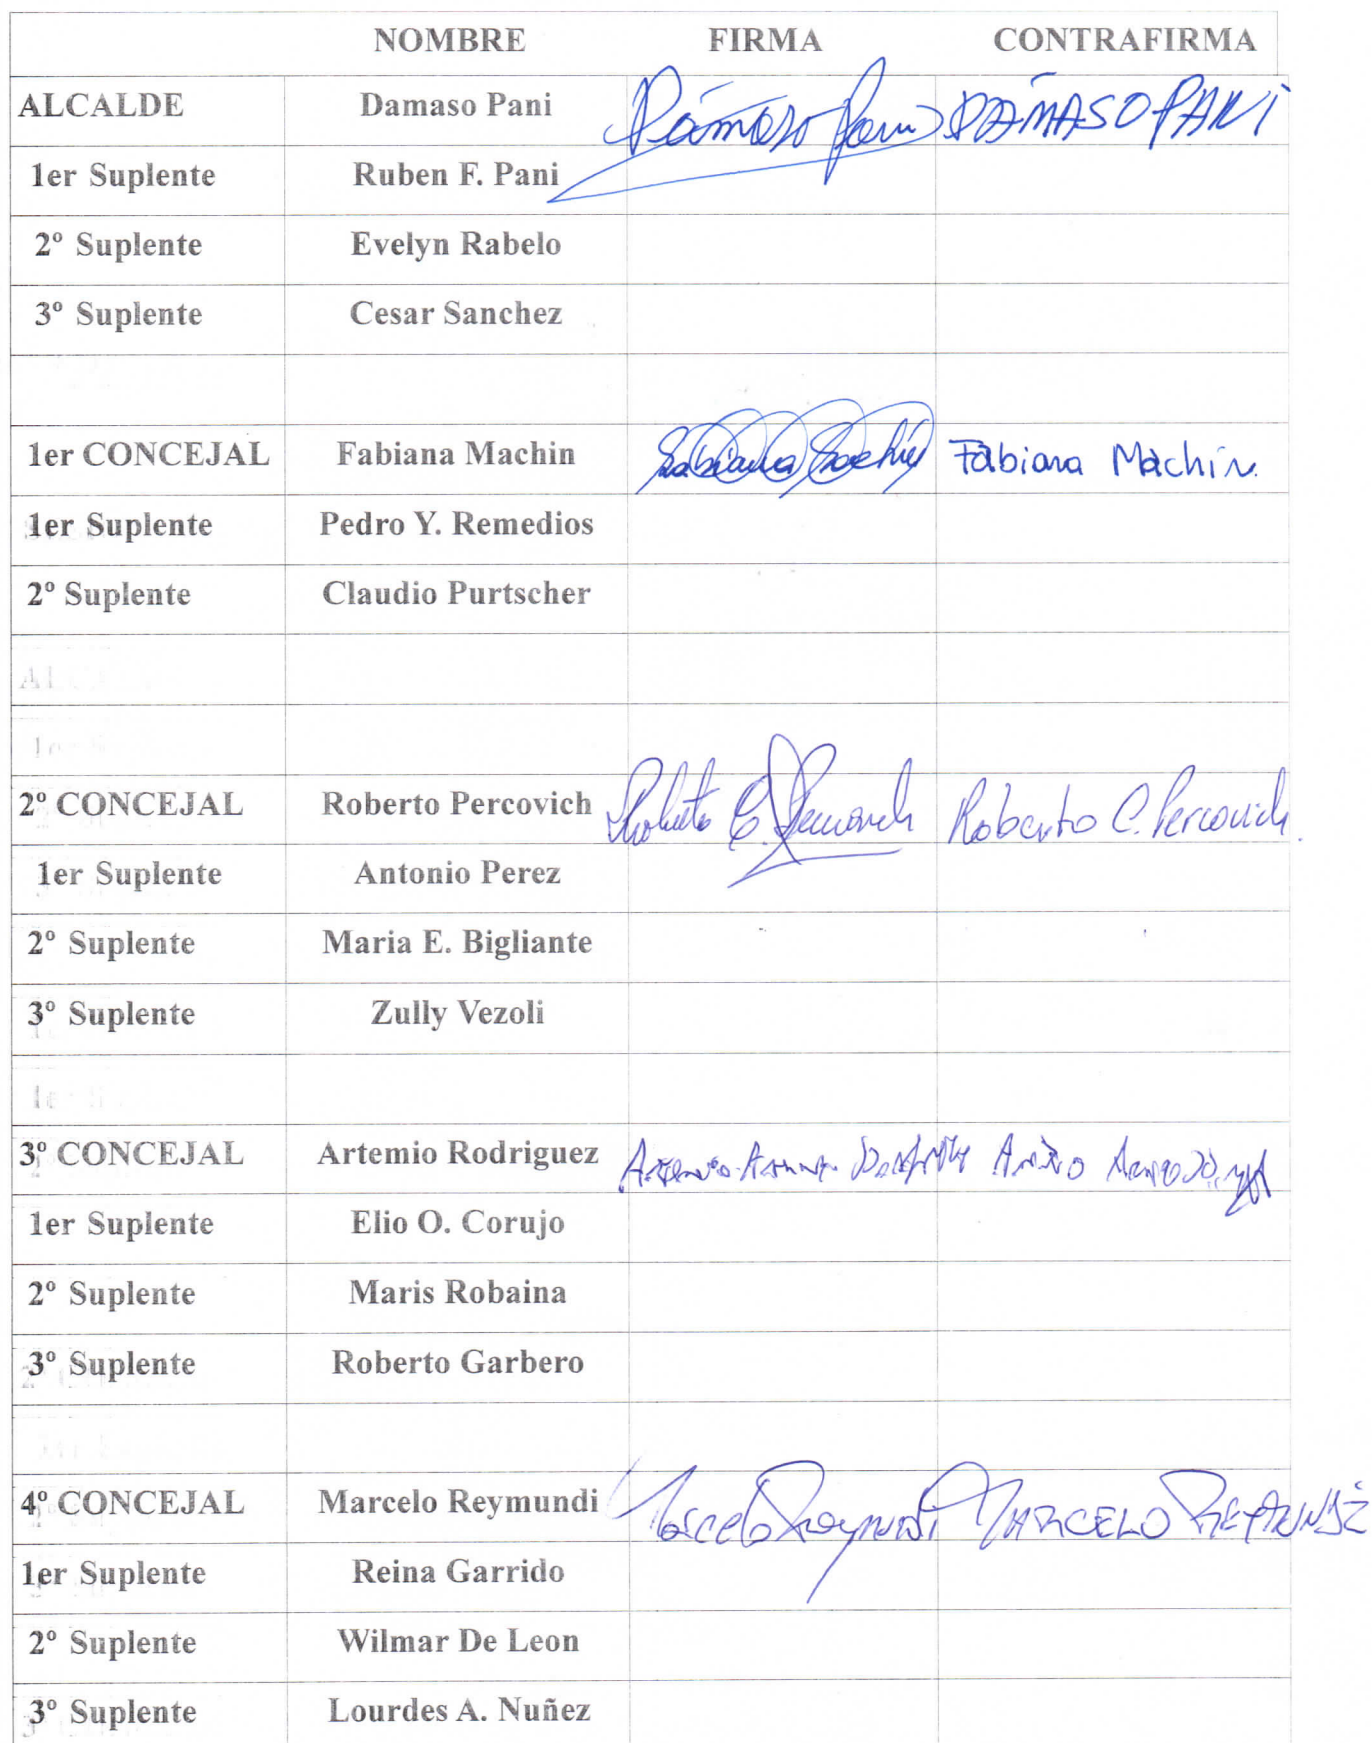 NOMBRE FIRMA CONTRAFIRMA
ALCALDE Damaso Pani Dámaso Pani DAMASO PANI
1er Suplente Ruben F. Pani
2º Suplente Evelyn Rabelo
3º Suplente Cesar Sanchez
1er CONCEJAL Fabiana Machin Fabiana Machin Fabiana Machin
1er Suplente Pedro Y. Remedios
2º Suplente Claudio Purtscher
2º CONCEJAL Roberto Percovich Roberto C. Percovich Roberto C. Percovich.
1er Suplente Antonio Perez
2º Suplente Maria E. Bigliante
3º Suplente Zully Vezoli
3º CONCEJAL Artemio Rodriguez
1er Suplente Elio O. Corujo
2º Suplente Maris Robaina
3º Suplente Roberto Garbero
4º CONCEJAL Marcelo Reymundi Marcelo Reymundi MARCELO REYMUNDI
1er Suplente Reina Garrido
2º Suplente Wilmar De Leon
3º Suplente Lourdes A. Nuñez